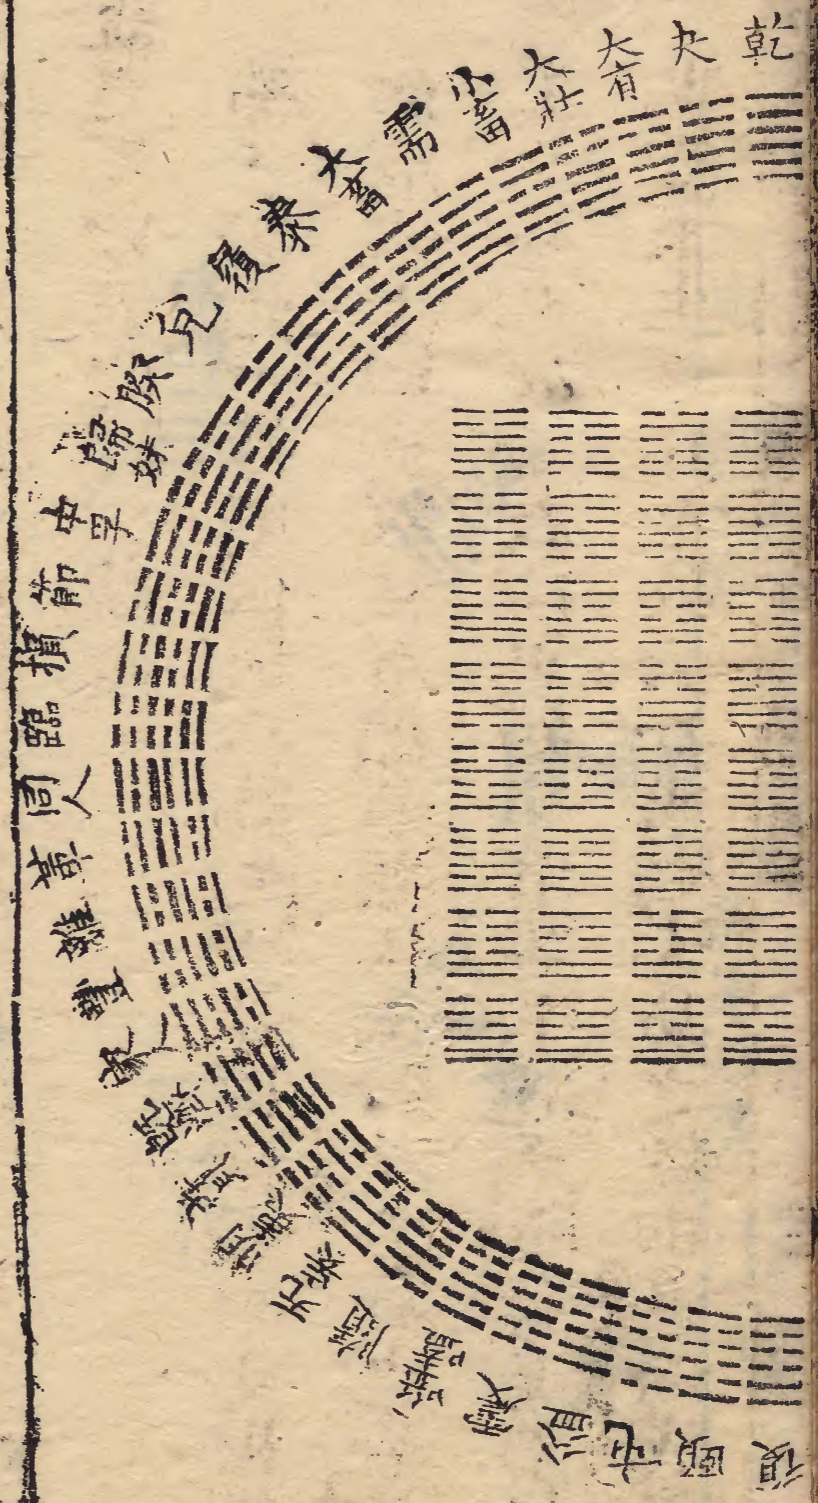 乾
夬
大有
大壯
小畜
需
大畜
泰
履
兌
睽
歸妹
中孚
節
損
臨
同人
革
離
豐
家人
既濟
賁
明夷
无妄
隨
噬嗑
震
益
屯
頤
復